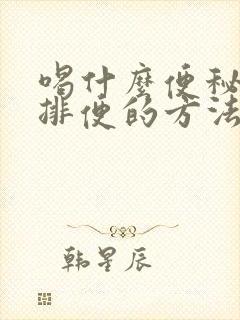 喝什麼便秘
排便的方法
韩星辰